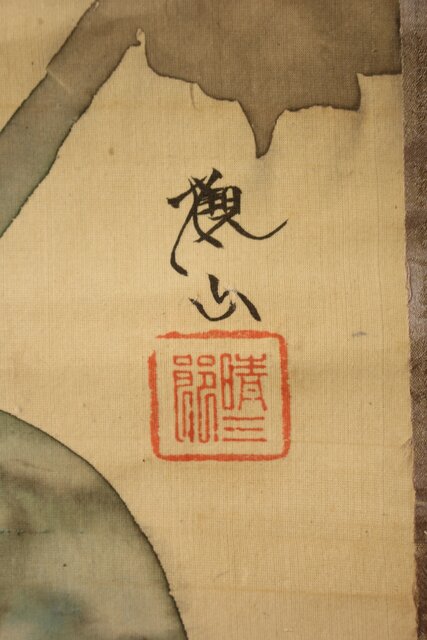 観山
晴三
郎